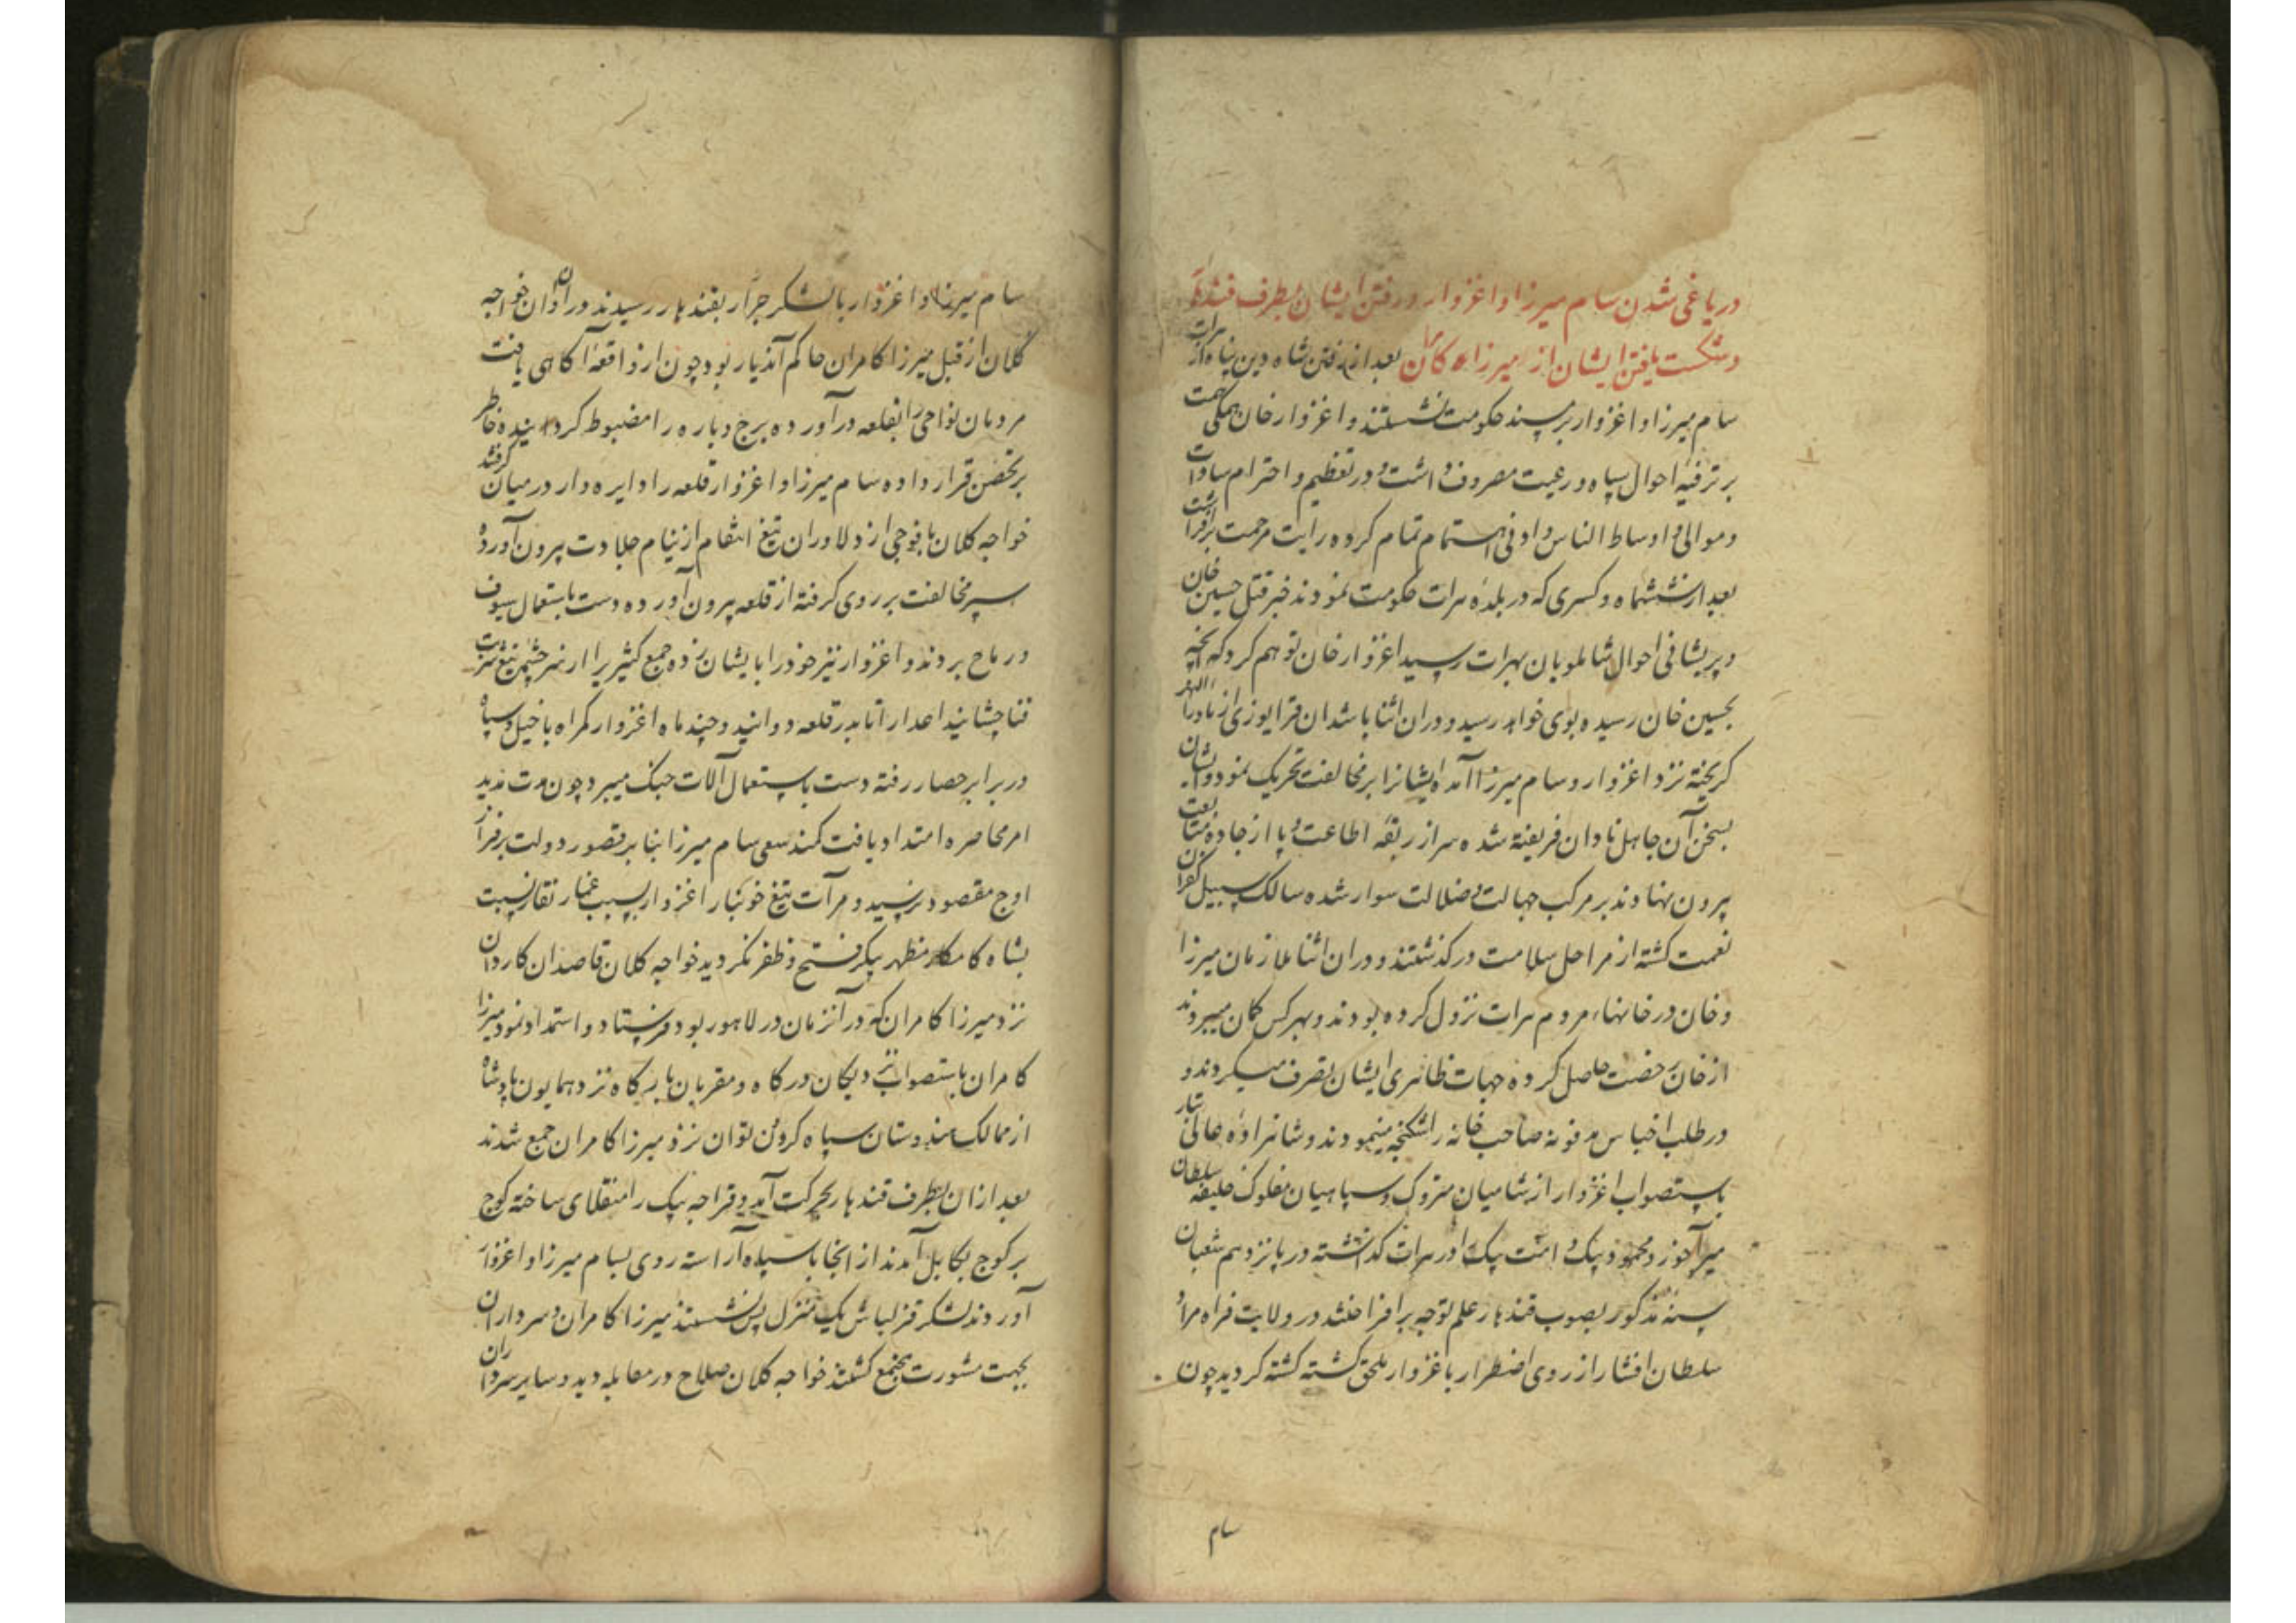 در یاغی شدن سام میرزا و اغزوار و رفتن ایشان بطرف قندهار
و شکست یافتن ایشان از میرزا کامران بعد از رفتن شاه دین پناه از هرات
سام میرزا و اغزوار بر مسند حکومت نشستند و اغزوار خان همگی همت
بر ترفیه احوال سپاه و رعیت مصروف داشت و در تعظیم و احترام سادات
و موالی و اوساط الناس و ادنی اهتمام تمام کرده رایت مرحمت برافراشت
بعد از ششماه و کسری که در بلده هرات حکومت نمودند خبر قتل حسین خان
و پریشانی احوال شاملویان بهرات رسید اغزوار خان توهم کرد که آنچه
بحسین خان رسیده بوی خواهد رسید و دران اثنا باشدان قرا یوزی از ماوراالنهر
کریخته نزد اغزوار و سام میرزا آمده ایشانرا بر مخالفت تحریک نمود و ایشان
بسخن آن جاهل نادان فریفته شده سر از ربقه اطاعت و پا از جاده متابعت
بیرون نهادند بر مرکب جهالت و ضلالت سوار شده سالک سبیل کفران
نعمت کشته از مراحل سلامت درکذشتند و دران اثنا ملازمان میرزا
و خان در خانها، مردم هرات نزول کرده بودند و بهر کس کمان میبردند
از خان رخصت حاصل کرده جهات ظاهری ایشان تصرف میکردند و
در طلب اجناس مدفونه صاحب خانه را شکنجه مینمودند و شاهزاده عالی تبار
باستصواب اغزوار از شامیان متروک و سپاهیان مفلوک خلیفه سلطان
میرآخور و محمود بیک و امت بیک در هرات کذاشته در پانزدهم شعبان
سنه مذکور بصوب قندهار علم توجه برافراختند در ولایت فراه مراد
سلطان افشار از روی اضطرار باغزوار ملحق کشته کشته کردید چون
سام
سام میرزا و اغزوار با لشکر جرار بقندهار رسیدند در آن اوان خواجه
کلان از قبل میرزا کامران حاکم آندیار بود چون ازو اقعه آکاهی یافت
مردمان نواحی را بقلعه درآورده برج و باره را مضبوط کرد خاطر
بر تحصن قرار داده سام میرزا و اغزوار قلعه را دایره وار در میان کرفتند
خواجه کلان با فوجی از دلاوران تیغ انتقام از نیام جلادت بیرون آورده
سپر مخالفت بر روی کرفته از قلعه بیرون آورده دست باستعمال سیوف
و رماح بردند و اغزوار نیز خود را با یشان زده جمع کثیر را از سرچشمه تیغ شربت
فنا چشانید اعدا را تا بدر قلعه دوانید و چند ماه اغزوار کمراه با خیل و سپاه
در برابر حصار رفته دست باستعمال آلات جنک میبرد چون مدت مدید
امر محاصره امتداد یافت کمند سعی سام میرزا بنا بر قصور دولت بر فراز
اوج مقصود نرسید و مرآت تیغ خونبار اغزوار بسبب غبار نقار نسبت
بشاه کامکار مظهر پیکر فتح و ظفر نکردید خواجه کلان قاصدان کاردان
نزد میرزا کامران که در آنزمان در لاهور بود فرستاد و استمداد نمود میرزا
کامران باستصواب نزدیکان درکاه و مقربان بارکاه نزد همایون پادشاه
از ممالک هندوستان سپاه کردون توان نزد میرزا کامران جمع شدند
بعد ازان بطرف قندهار بحرکت آمد و قراجه بیک را منقلای ساخته کوج
بر کوج بکابل آمدند از انجا با سپاه آراسته روی بسام میرزا و اغزوار
آوردند لشکر قزلباش یک منزل پس نشستند میرزا کامران و سرداران
بجهت مشورت مجتمع کشتند خواجه کلان صلاح در مقابله دید و سایر سرداران